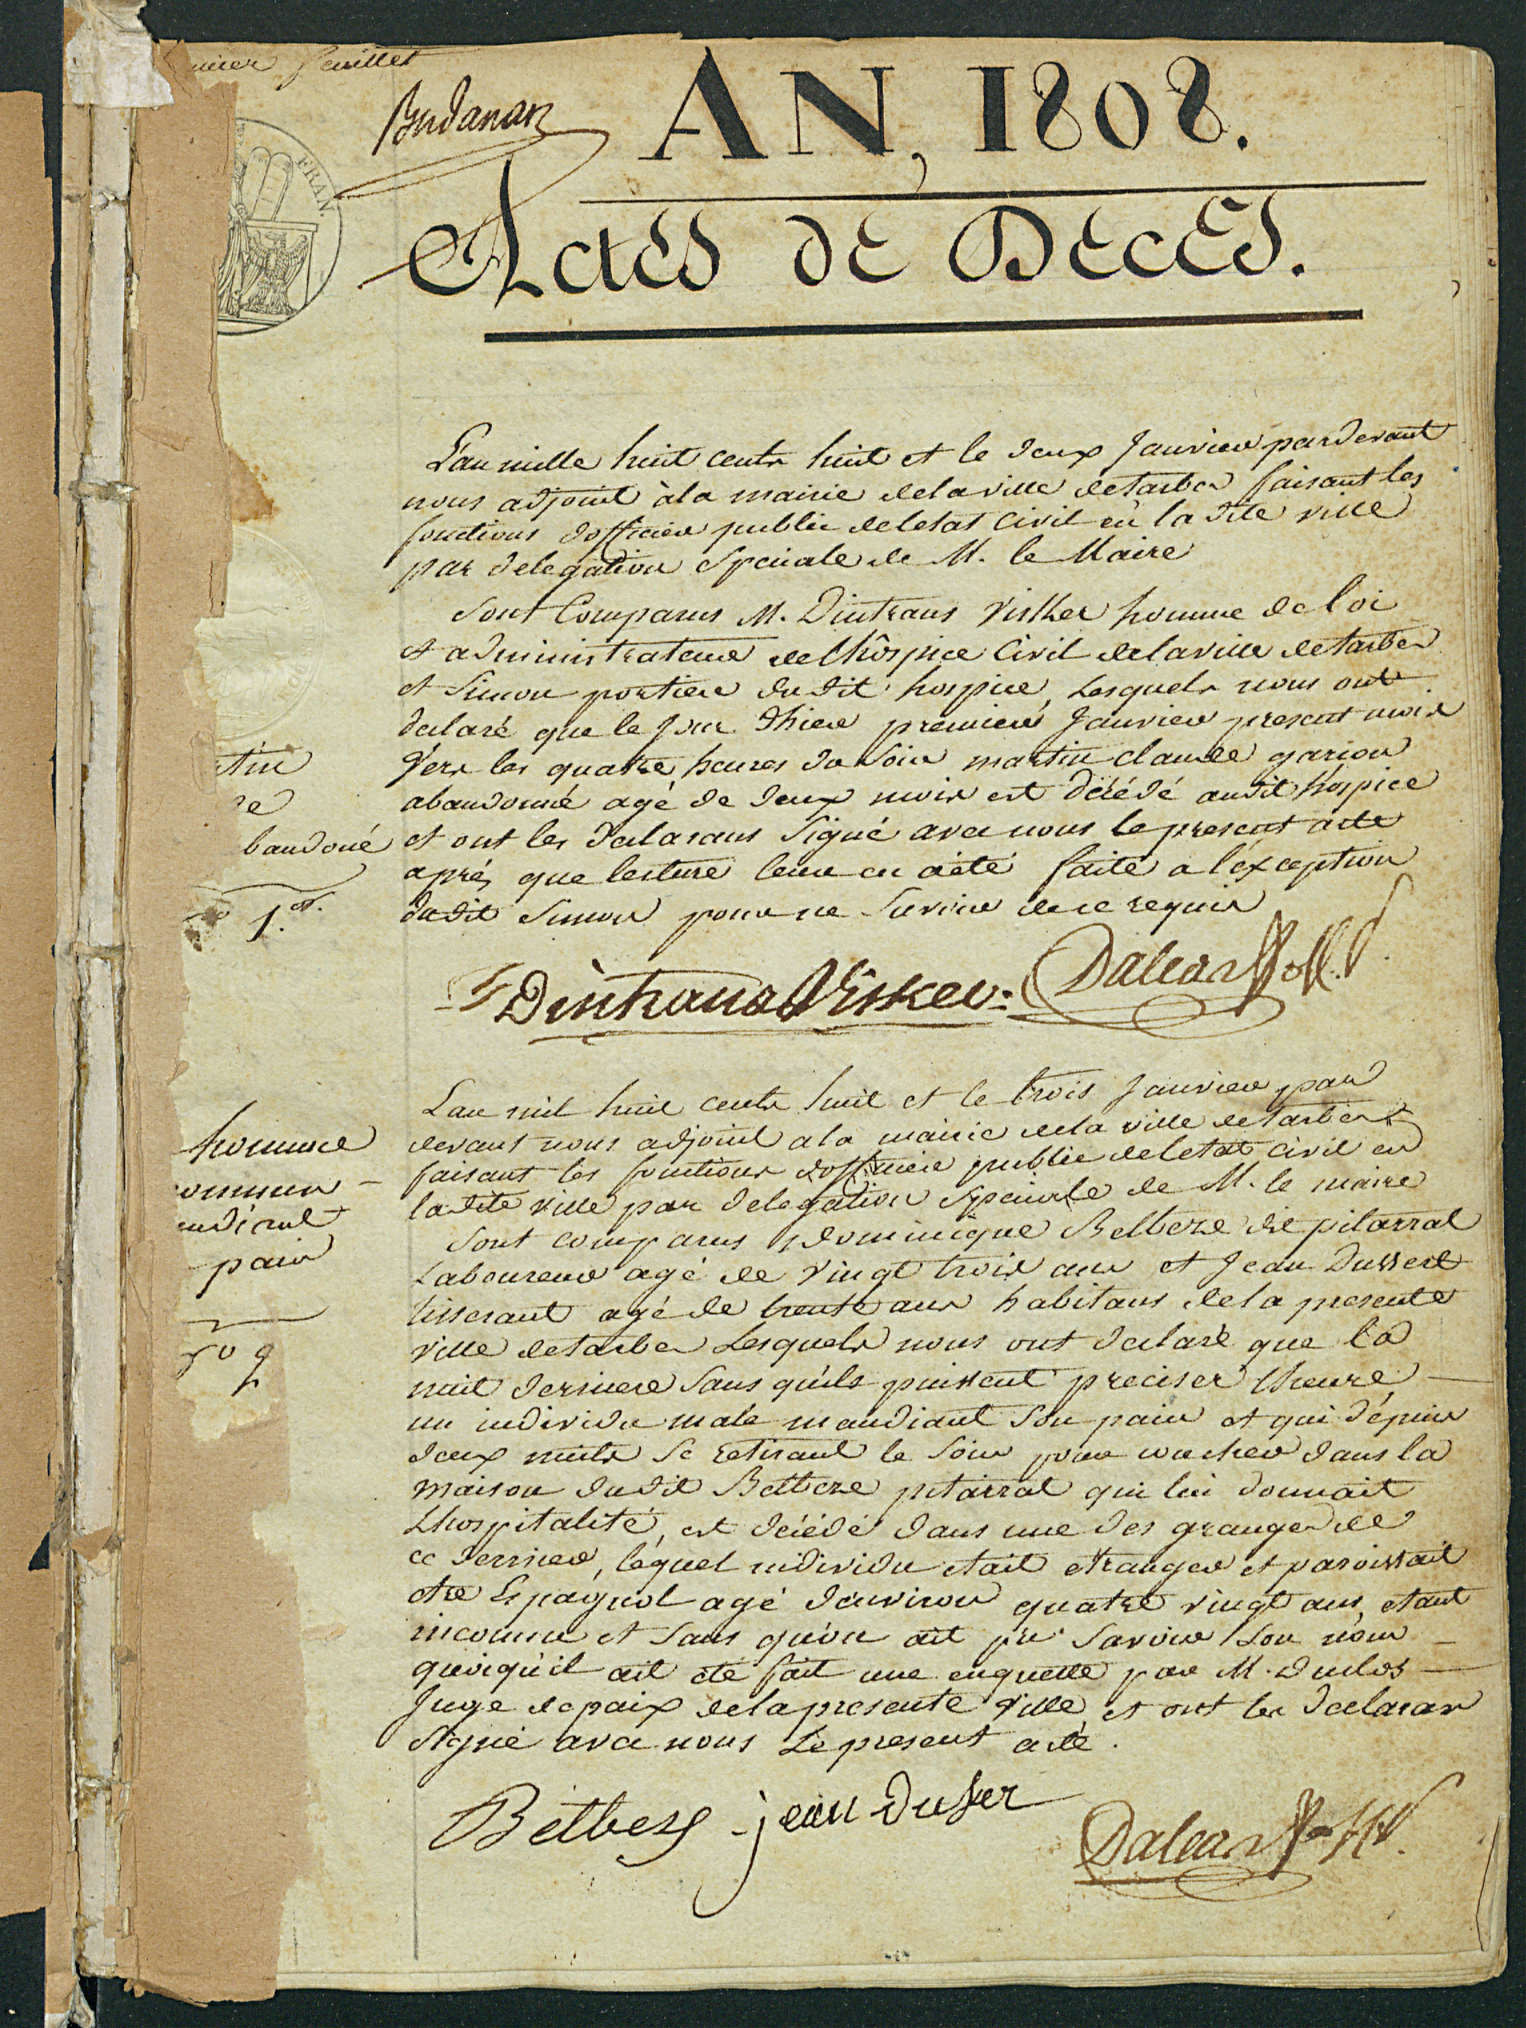 feuillet
AN, 1808.
Actes de Deces.
FRAN.
L'an mille huit cents huit et le deux Janvier pardevant
nous adjoint à la mairie de la ville de tarbes faisant les
fonctions d'officier public de letat Civil en la dite ville
par delegation Speciale de M. le Maire
Sont Comparus M. Dintrans Visker homme de loi
et administrateur de lhôspice Civil de la ville de tarbes
et Simon portier du dit hospice, Lesquels nous ont
declaré que le jour d'hier premier Janvier present mois
Vers les quatre heures du Soir martin claude garçon
abandonné agé de deux mois est décédé audit hospice
et ont les declarans Signé avec nous le present acte
aprés que lecture leur en a été faite a l'éxception
dudit Simon pour ne Savoir de ce requis
bandoné
1.er
Dintrans Visker
L'an mil huit cents huit et le trois Janvier par
devant nous adjoint a la mairie de la ville de tarbes
faisant les fonctions d'officier public de letat civil en
la dite ville par delegation Speciale de M. le maire
Sont comparus dominique Belbeze dit pitarrat
Laboureur agé de Vingt trois ans et Jean Dussert
tisserant agé de trente ans habitans de la presente
ville de tarbes Lesquels nous ont declaré que la
nuit derniere Sans qu'ils puissent preciser lheure
un individu male mandiant Son pain et qui dépuis
deux nuits Se retirant le Soir pour coucher dans la
maison dudit Belbeze pitarrat qui lui donnait
Lhospitalité, est décédé dans une des granges de
ce dernier, léquel individu etait etranger et paroissait
etre Espagnol agé d'environ quatre vingt ans, etant
inconnu et Sans qu'on ait pu Savoir Son nom
quoiqu'il ait été fait une enquette par M. duclos
Juge de paix de la presente Ville et ont les declarans
Signé avec nous Le present acte.
homme
pain
Belbeze jean duser